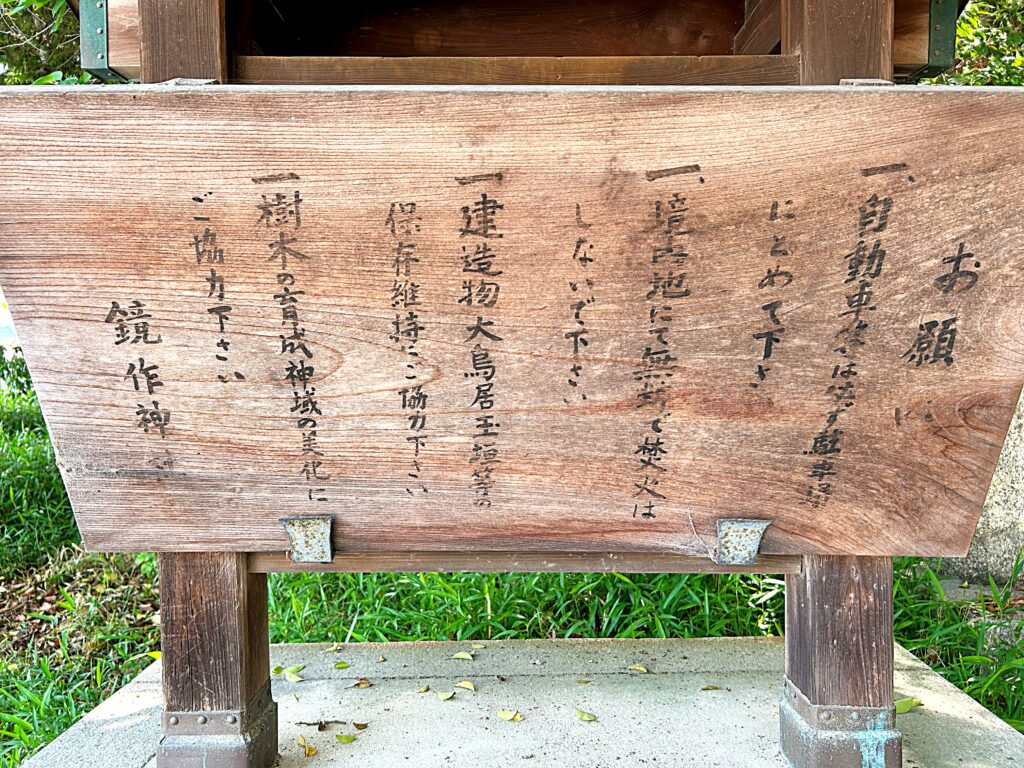 お願い
一、自動車等は必ず駐車場
にとめて下さい
一、境内地にて無断で焚火は
しないで下さい
一、建造物大鳥居玉垣等の
保存維持にご協力下さい
一 樹木の育成神域の美化に
ご協力下さい
鏡作神社